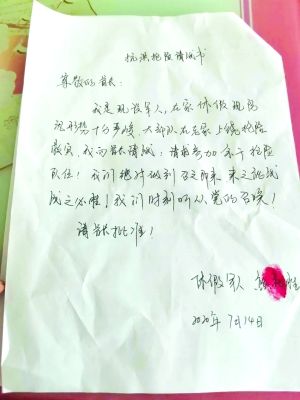 抗洪抢险请战书
尊敬的首长：
我是现役军人，在家休假现汛
汛形势十分严峻 大部队在在家上饶抢险
救灾，我向首长请战：请求参加余干抢险
队伍！我们绝对做到召之即来 来之能战
战之必胜！我们时刻听从党的召唤！
请首长批准！
休假军人
2020年7月14日